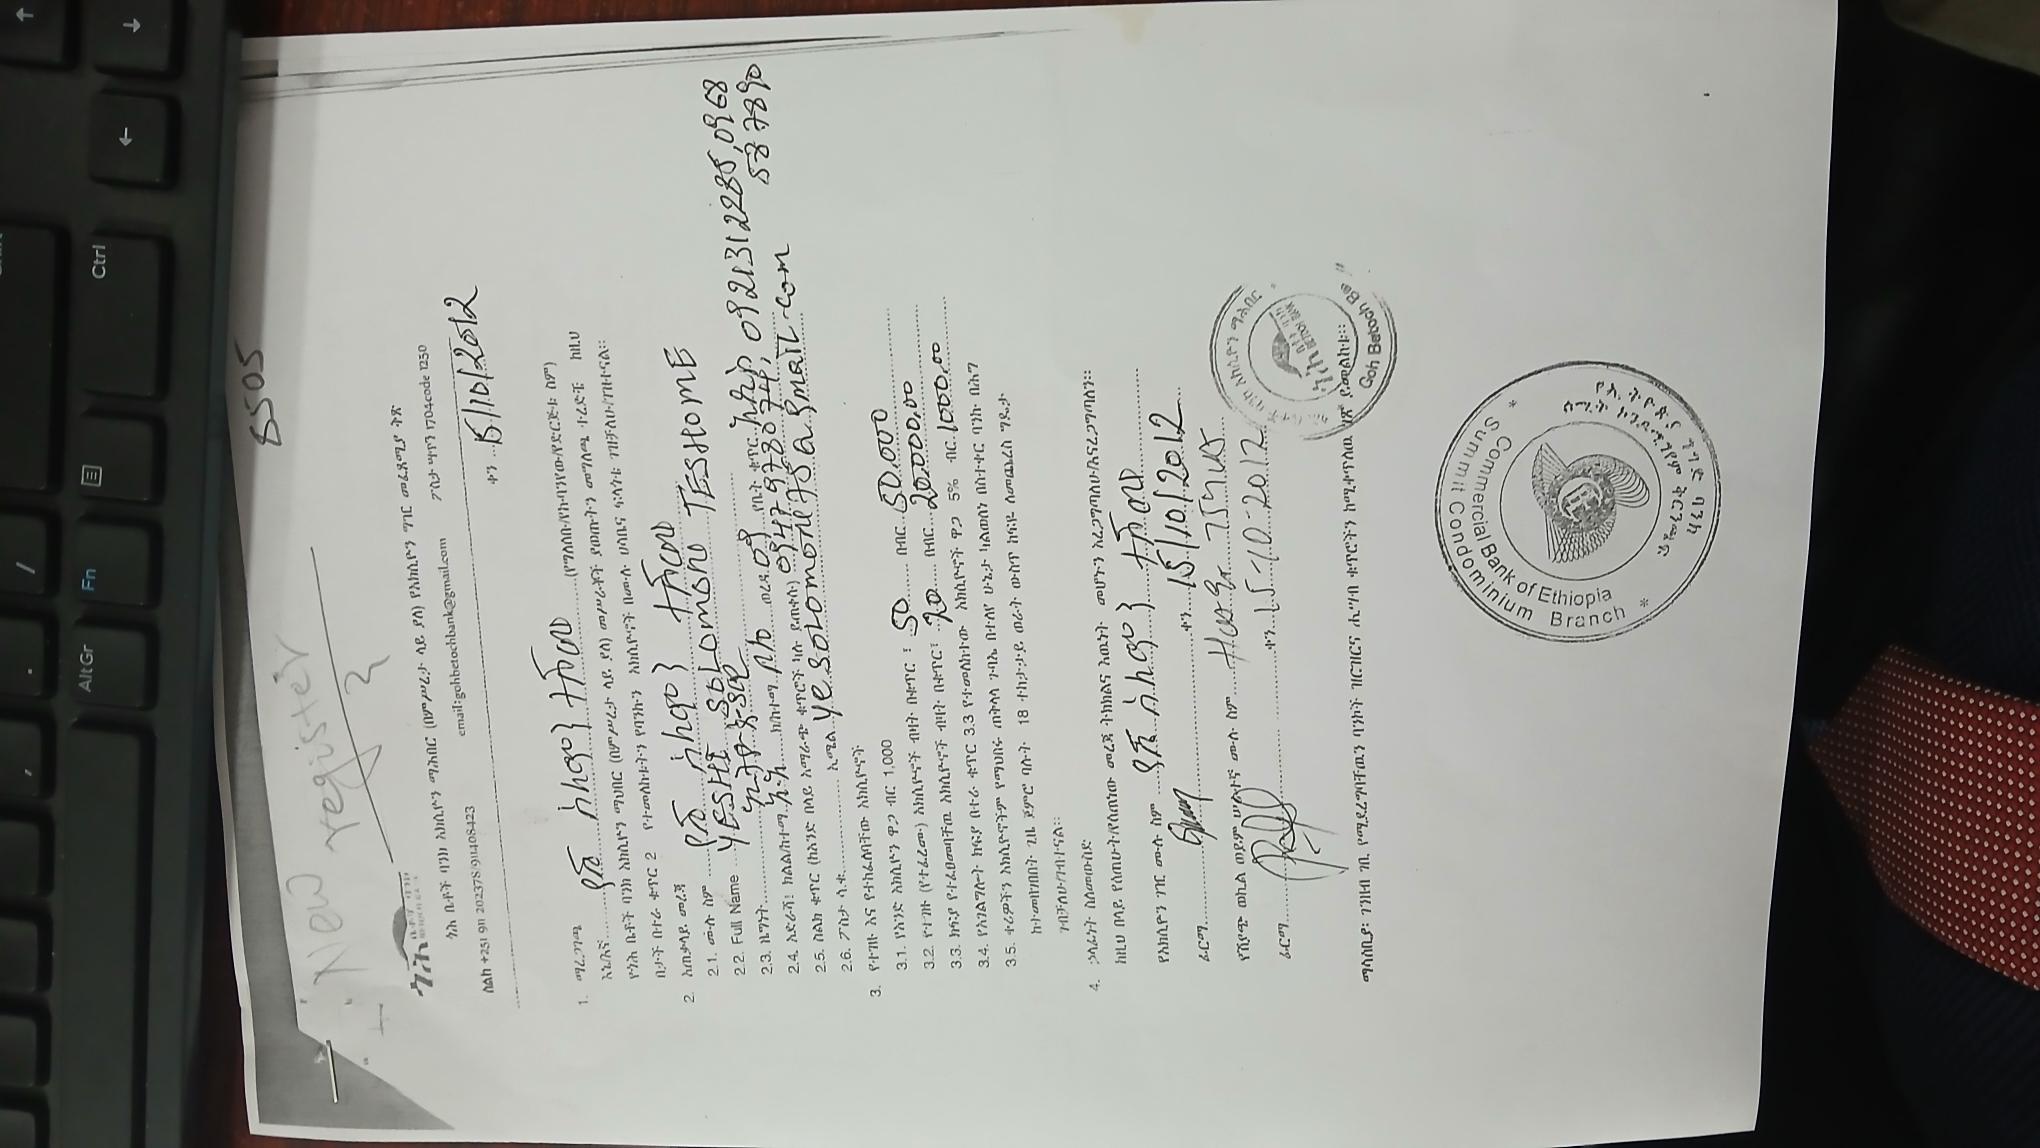 Alt Gr
Fn
Ctrl
8505
New register
ጎሕ ቤቶች ባንክ
BETOCH BANK
ጎሕ ቤቶች ባንክ አክሲዮን ማሕበር (በምሥረታ ላይ ያለ) የአክሲዮን ግዢ መፈጸሚያ ቅጽ
ስልክ +251 911 202378/911408423 email:gohbetochbank@gmail.com ፖስታ ሣጥን 1704code 1250
ቀን 15/10/2012
1. ማረጋገጫ
እኔ/እኛ የሺ ሰለሞን ተሾመ (የግለሰቡ/የኩባንያው/የድርጅቱ ስም)
የጎሕ ቤቶች ባንክ አክሲዮን ማህበር (በምሥረታ ላይ ያለ) መሥራቾች ያወጡትን መግለጫ ተረድቼ ከዚህ
በታች በተራ ቁጥር 2 የተመለከቱትን የባንኩን አክሲዮኖች በሙሉ ሀሳቤና ፍላጎቴ ገዝቻለሁ/ገዝተናል፡፡
2. አጠቃላይ መረጃ
2.1. ሙሉ ስም የሺ ሰለሞን ተሾመ
2.2. Full Name YESHI SOLOMON TESHOME
2.3. ዜግነት ኢትዮጵያዊ
2.4. አድራሻ፤ ክልል/ከተማ አ.አ ክ/ከተማ ቦሌ ወረዳ 09 የቤት ቁጥር አዲስ 0921312285, 0968
587890
2.5. ስልክ ቁጥር (ከአንድ በላይ አማራጭ ቁጥሮች ካሉ ይጠቀሱ) 0947978074,
2.6. ፖስታ ሳ.ቁ. ኢሜል yesolomone75@gmail.com
3. የተገዙ እና የተከፈለባቸው አክሲዮኖች
3.1. የአንድ አክሲዮን ዋጋ ብር 1,000
3.2. የተገዙ (የተፈረሙ) አክሲዮኖች ብዛት በቁጥር ፤ 50 በብር 50,000
3.3. ክፍያ የተፈፀመባቸዉ አክሲዮኖች ብዛት በቁጥር፤ 20 በብር 20,000.00
3.4. የአገልግሎት ክፍያ በተራ ቁጥር 3.3 የተመለከተው አክሲዮኖች ዋጋ 5% ብር 1000.00
3.5. ቀሪዎችን አክሲዮኖችም የማህበሩ ጠቅላላ ጉባኤ በተለየ ሁኔታ ካልወሰነ በስተቀር ባንኩ በሕግ
ከተመዘገበበት ጊዜ ጀምሮ ባሉት 18 ተከታታይ ወራት ውስጥ ከፍዬ ለመጨረስ ግዴታ
ገብቻለሁ/ገብተናል፡፡
4. ኃላፊነት ስለመውሰድ
ከዚህ በላይ የሰጠሁት/የሰጠነው መረጃ ትክክልና እዉነት መሆኑን አረጋግጣለሁ/እናረጋግጣለን፡፡
የአክሲዮን ገዢ ሙሉ ስም የሺ ሰለሞን ተሾመ
ፊርማ ቀን 15/10/2012
የሽያጭ ወኪል ወይም ሠራተኛ ሙሉ ስም
ፊርማ ቀን 15-10-2012
ማሳሰቢያ፡ ገንዘብ ገቢ የሚደረግባቸዉን ባንኮች ዝርዝርና ሒሣብ ቁጥሮችን ከሚቀጥለዉ ገጽ ይመልከቱ፡፡
ጎሕ ቤቶች ባንክ አክሲዮን ማሕበር
ጎሕ ቤቶች ባንክ
BETOCH BANK
Goh Betoch Ba
Commercial Bank of Ethiopia
* Summit Condominium Branch *
የኢትዮጵያ ንግድ ባንክ
ሰሚት ኮንዶሚኒየም ቅርንጫፍ